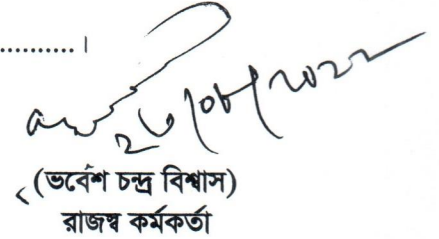 ........... ।
২৮/০৮/২০২২
(ভবেশ চন্দ্র বিশ্বাস)
রাজস্ব কর্মকর্তা